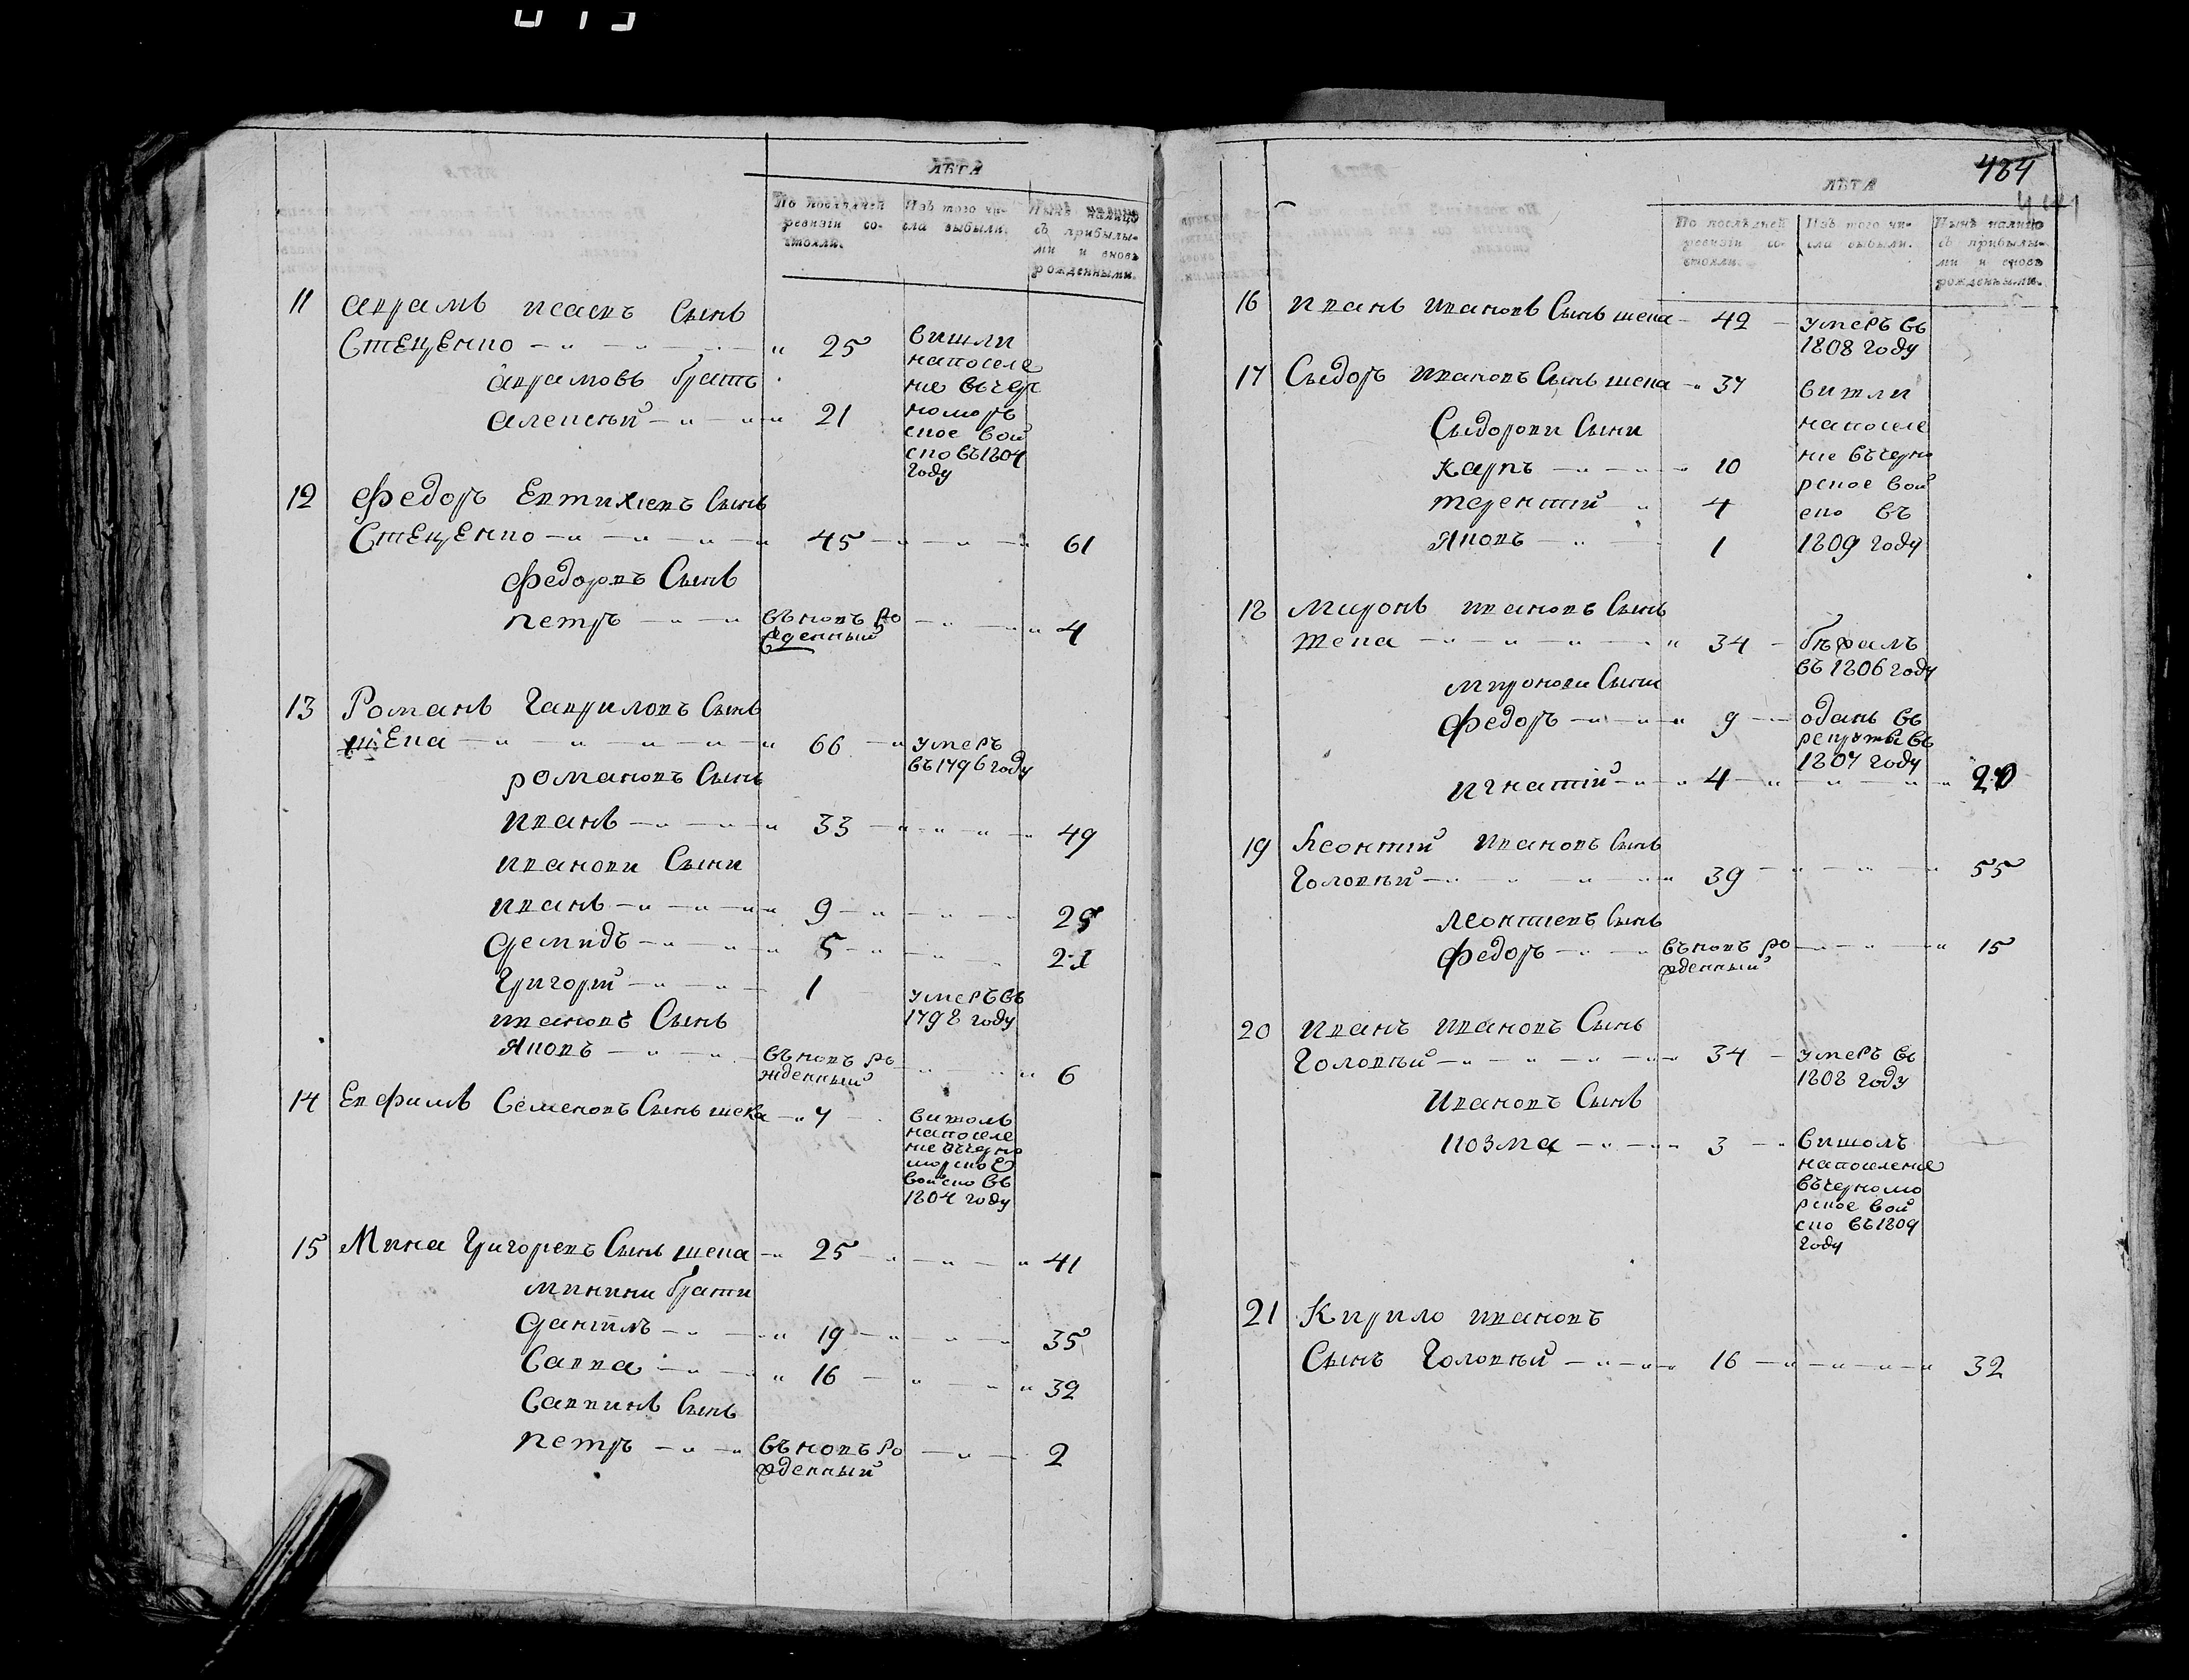 ЛѢТА
По послѣдней ревизіи со-
стояли.
Изъ того чи-
сла выбыли.
Нынѣ налицо
съ прибылы-
ми и вновь
рожденными.
11 аврамъ исаевъ Сынъ
Стеценко 25 вишли
напоселе
аврамовъ братъ ние въчер
алексѣй 21 номоръ
ское вой
ско въ1804
году
12 Федоръ Евтихіевъ Сынъ
Стеценко 45 61
федоровъ Сынъ
петръ въновъ ро 4
жденный
13 Романъ Гавриловъ Сынъ
шека 66 умеръ
въ1796году
романовъ Сынъ
иванъ 33 49
иванови Сыни
иванъ 9 25
демидъ 5 21
Григорій 1 умеръ въ
ивановъ Сынъ 1798 году
Яковъ въновъ ро 6
жденный
14 Евфимъ Семеновъ Сынъ шека 7 витолъ
напоселе
ние въчерно
морское
войско въ
1804 году
15 Мина Григоревъ Сынъ шека 25 41
минини брати
данїилъ 19 35
Савва 16 32
Саввинъ Сынъ
петръ въновъ ро 2
жденный
484
ЛѢТА
По послѣдней
ревизіи со-
стояли.
Изъ того чи-
сла выбыли.
Нынѣ налицо
съ прибылы-
ми и вновь
рожденными.
16 иванъ ивановъ Сынъ шека 42 умеръ въ
1808 году
17 Сыдоръ ивановъ Сынъ шека 37 витли
Сыдорови Сыни напоселе
Карпъ 10 ние въчерно
терентій 4 рское вой
Яковъ 1 ско въ
1809 году
18 Миронъ ивановъ Сынъ
шека 34 бѣжалъ
въ1806году
миронови Сыни
федоръ 9 оданъ въ
рекруты въ
1807 году
игнатій 4 20
19 Леонтій ивановъ Сынъ
Головнѣй 39 55
леонтіевъ Сынъ
федоръ въновъ ро 15
жденный
20 иванъ ивановъ Сынъ
Головнѣй 34 умеръ въ
1808 году
Ивановъ Сынъ
козма 3 вишолъ
напоселение
въчерномо
рское вой
ско въ1809
году
21 Кирило ивановъ
Сынъ Головнѣй 16 32